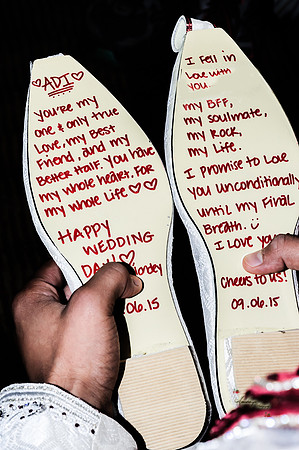 ♡ADI♡
you're my
one & only true
Love, my Best
Friend, and my
Better Half. You have
my whole heart, For
my whole Life ♡♡
HAPPY
WEDDING
DAY!♡
.06.15
I Fell in
Love with
you.
my BFF,
my soulmate,
my Rock,
my Life.
I promise to Love
you unconditionally
until my Final
Breath. :)
I Love you
Cheers to us!
09.06.15